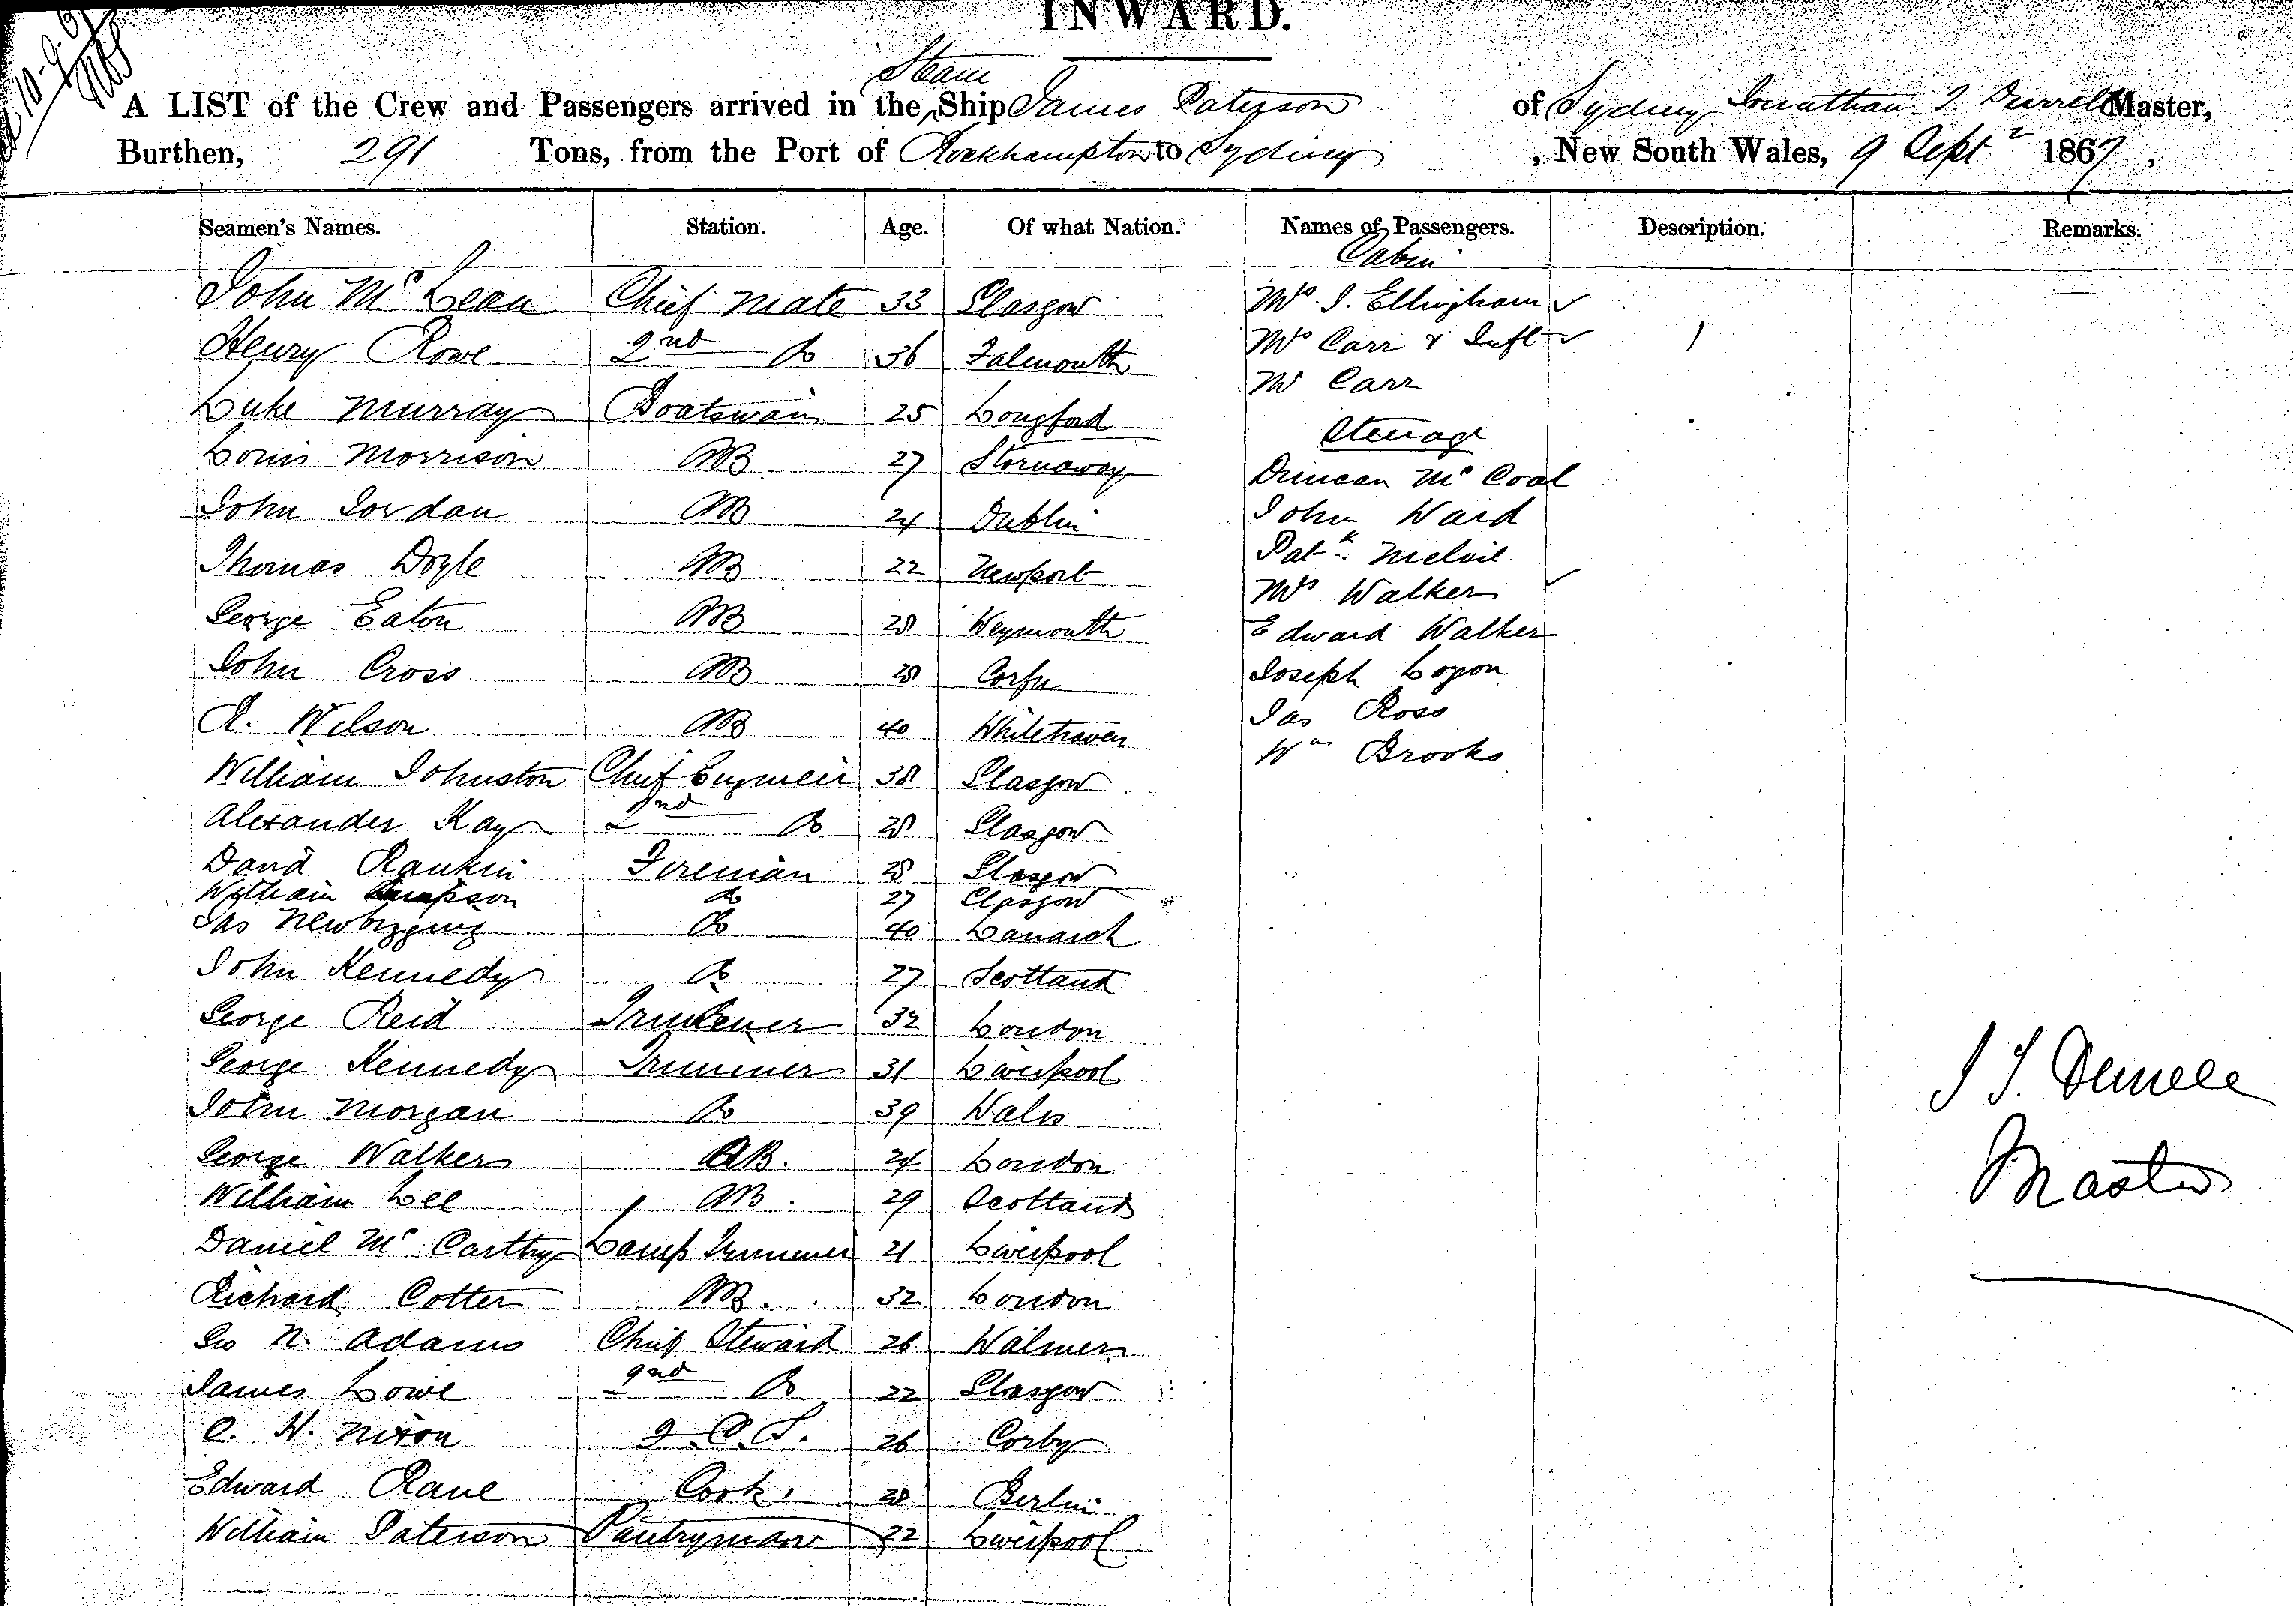 INWARD.
Steam
A LIST of the Crew and Passengers arrived in the Ship James Paterson of Sydney Jonathan T Durrell Master,
Burthen, 291 Tons, from the Port of Rockhampton to Sydney, New South Wales, 9 Septr 1867,
Seamen's Names. Station. Age. Of what Nation. Names of Passengers. Description. Remarks.
Cabin
John McLean Chief Mate 33 Glasgow Mrs. J. Ellingham
Henry Rowe 2nd Do 36 Falmouth Mrs Carr & Inft 1
Luke Murray Boatswain 25 Longford Mr Carr
Steerage
Louis Morrison AB 27 Stornaway Duncan Mc Coal
John Jordan AB 24 Dublin John Ward
Thomas Doyle AB 22 Newport Patk Melvil
George Eaton AB 28 Weymouth Mrs Walker
John Cross AB 28 Corfu Edward Walker
Joseph Logon
A. Wilson AB 40 Whitehaven Jas Ross
William Johnston Chief Engineer 38 Glasgow Wm Brooks
Alexander Kay 2nd Do 28 Glasgow
David Rankin Fireman 28 Glasgow
William Do 27 Glasgow
Jas Newbigging Do 40 Lanark
John Kennedy Do 27 Scotland
George Reid 32 London
George Kennedy Trimmer 31 Liverpool
John Morgan Do 39 Wales
George Walker AB. 24 London
William Lee AB. 29 Scotland
Daniel Mc Carthy Lamp Trimmer 21 Liverpool
Richard Cotter AB. 32 London
Geo N. Adams Chief Steward 26 Walmer
James Lowe 2nd Do 22 Glasgow
C. H. Nixon 26 Corby
Edward Rane Cook. 28 Berlin
William Paterson Pantryman 22 Liverpool
J T. Durrell
Master